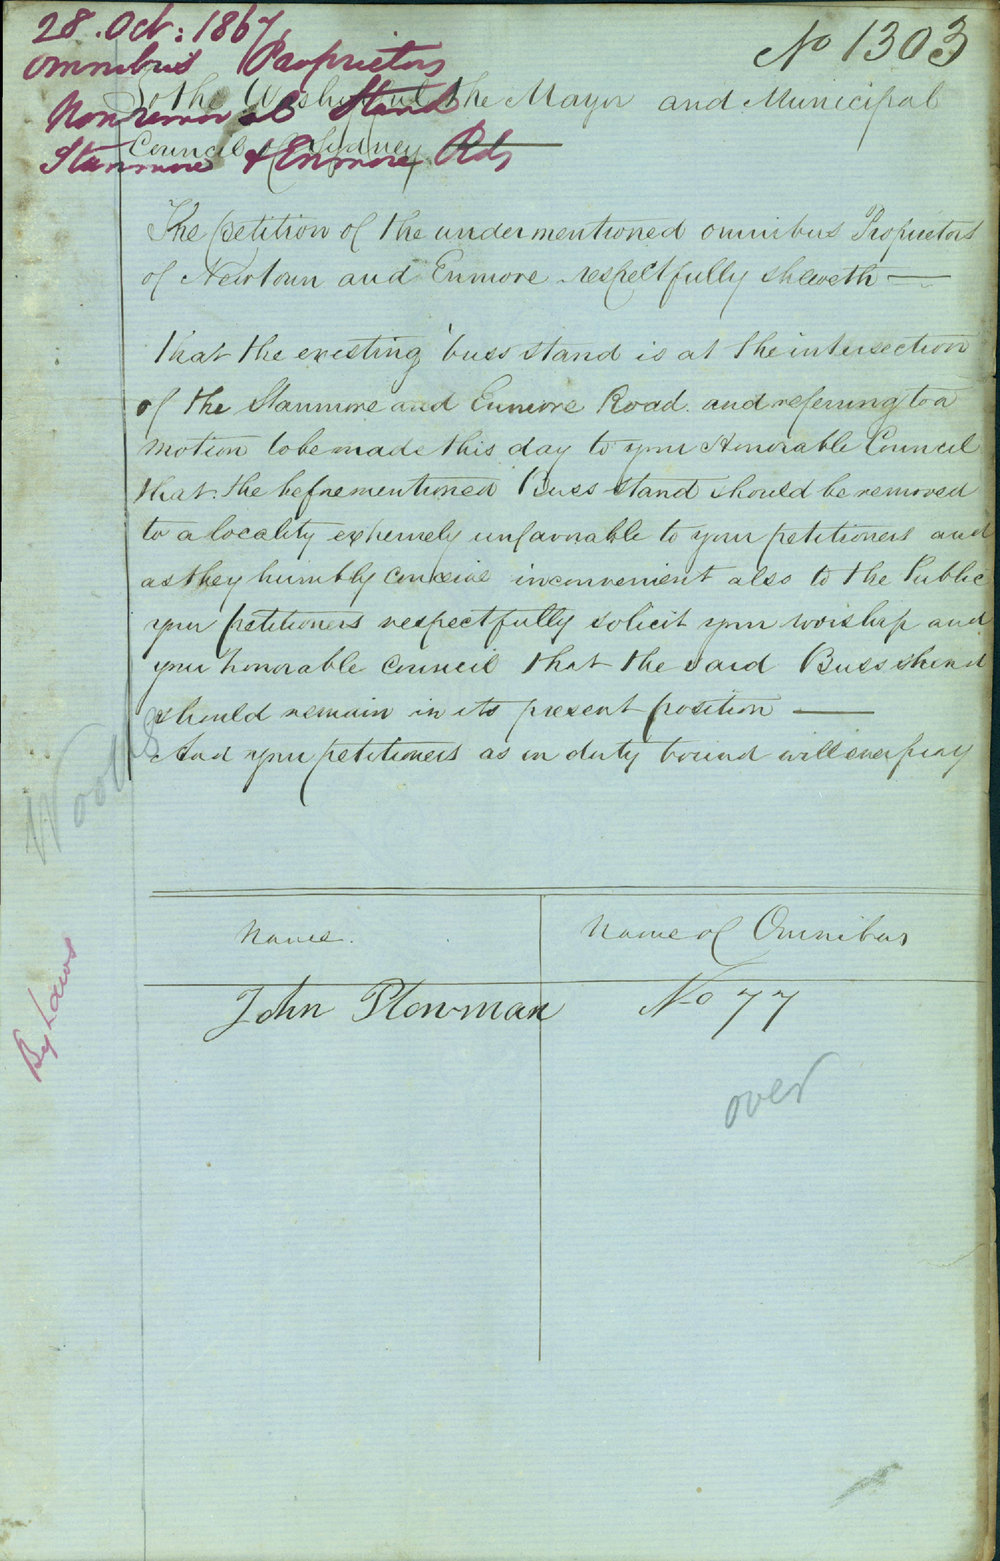 28. Oct: 1867,
No 1303
Omnibus Proprietors
Non removal Stand
Stanmore & Enmore Rds
To the Worshipful the Mayor and Municipal
Council of Sydney
The petition of the undermentioned omnibus Proprietors
of Newtown and Enmore respectfully sheweth —
That the existing 'buss stand is at the intersection
of the Stanmore and Enmore Road. and referring to a
motion to be made this day to your Honorable Council
that the beforementioned Buss stand should be removed
to a locality extremely unfavorable to your petitioners and
as they humbly conceive inconvenient also to the Public
your petitioners respectfully solicit your worship and
your honorable Council that the said Buss stand
should remain in its present position —
And your petitioners as in duty bound will ever pray
By Laws
Name.
Name of Omnibus
John Plowman
No 77
over